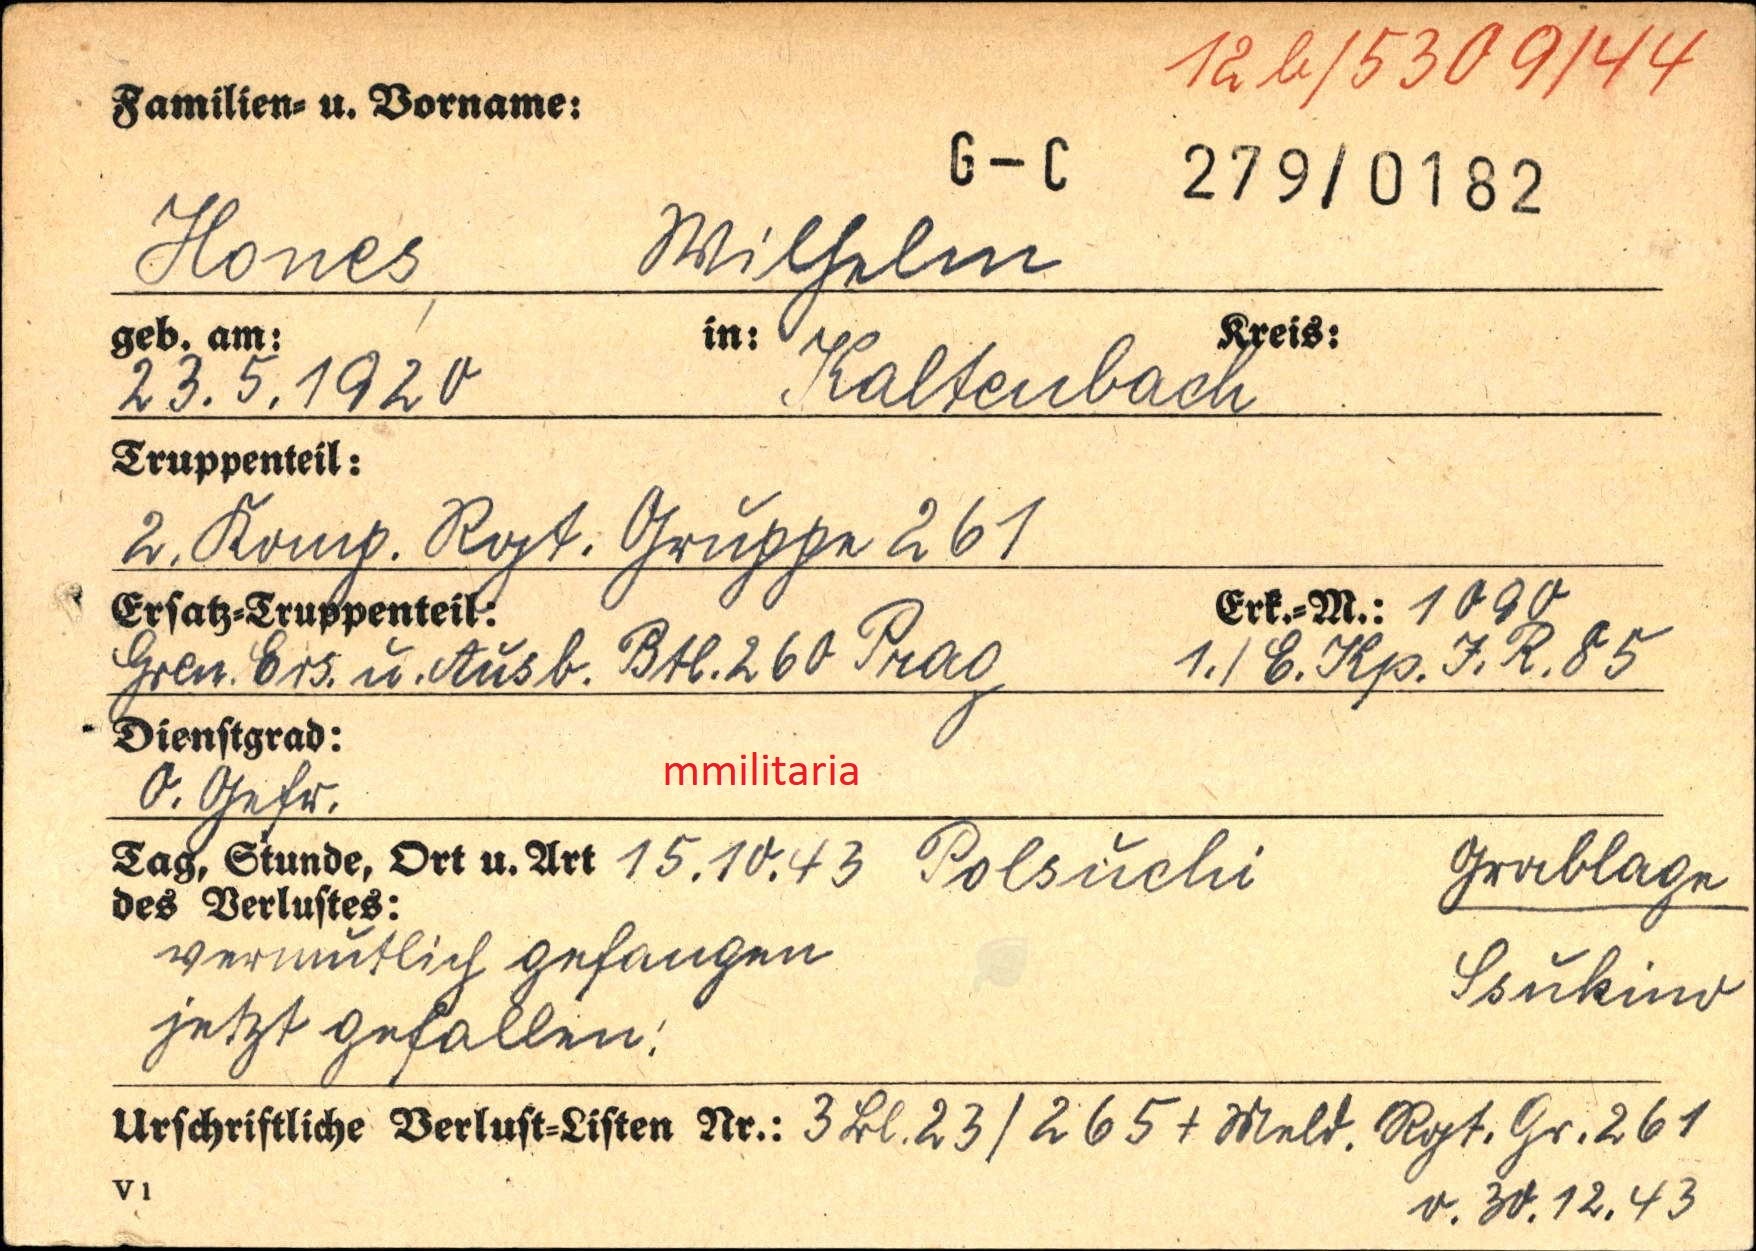 12 b/5309/44
Familien- u. Vorname:
G-C 279/0182
Hones, Wilhelm
geb. am: in: Kreis:
23.5.1920 Kaltenbach
Truppenteil:
2. Komp. Rgt. Gruppe 261
Ersatz-Truppenteil: Erk.-M.: 1090
Gren. Ers. u. Ausb. Btl. 260 Prag 1./E. Kp. I. R. 85
Dienstgrad:
O. Gefr.
mmilitaria
Tag, Stunde, Ort u. Art 15.10.43 Polsuchi Grablage
des Verlustes:
vermutlich gefangen Ssukino
jetzt gefallen!
Urschriftliche Verlust-Listen Nr.: 3 Bl. 23/265 + Meld. Rgt. Gr. 261
V 1 v. 30.12.43